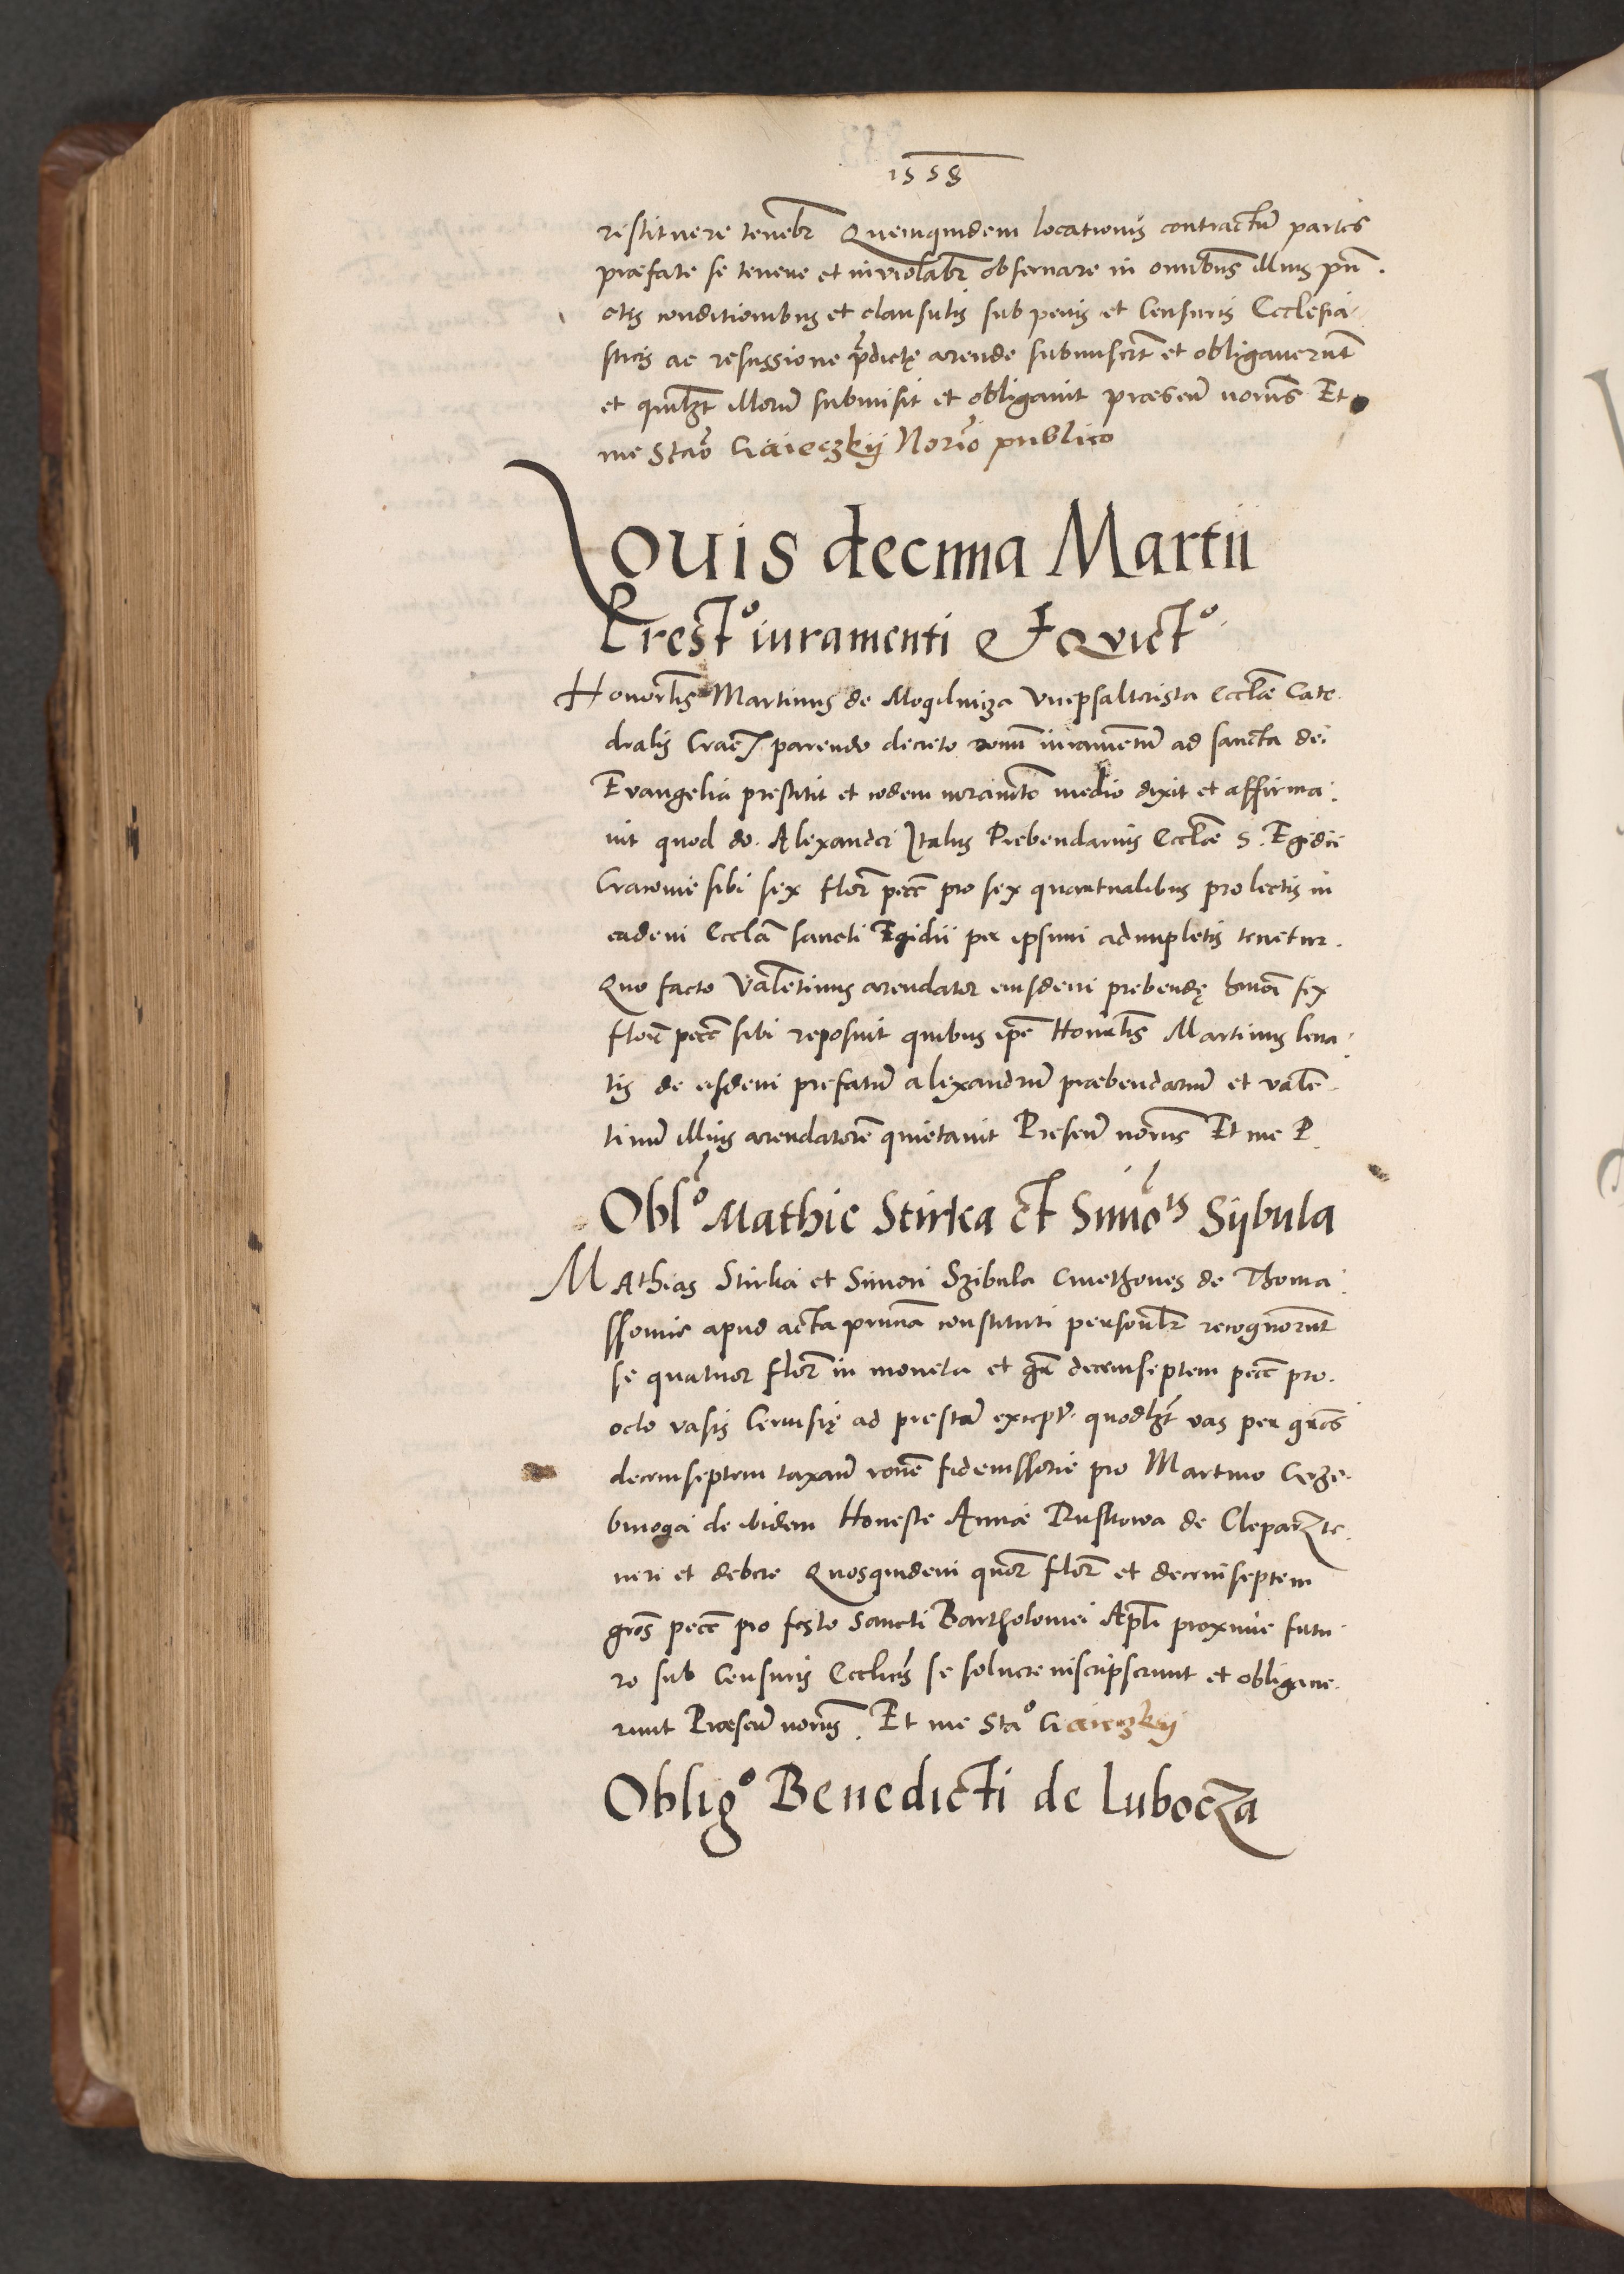 1558
restituere tenebr Quemquidem locationis contractu partes
præfate se tenere et inviolabr observare in omnibus illius pun
ctis conditionibus et clausulis sub penis et Censuris Ecclesia
sticis ac rescissione prdictę arende submisert et obligaverunt
et quilzt illorum submisit et obligavit præsen norus Et
me Stao Gaieczkij Norio publico
Jouis decima Martii
Presto iuramenti et Qvicto
Honorlis Martinus de Mogilnicza Vicepsalterista Ecclæ Cate
dralis Crac parendo decreto iuramentum ad sancta dei
Evangelia prestitit et eodem medio dixit et affirma
vit quod do. Alexander Italus Prebendarius Ecclæ S. Egidii
Cracovie sibi sex flor pecc pro sex quartualibus pro lectis in
eadem Eccla sancti Egidii per ipsum adimpletis tenetur.
Quo facto Valetinus arendator eiusdem prebendę hmoi sex
flor pecc sibi reposuit quibus ipe Honorlis Martinus leva
tis de eisdem prefatu alexandru præbendariu et vale
tinu illius arendatore quietavit Presen norus Et me P.
Oblo Mathie Stirka et Simois Sijbula
Mathias Stirka et Simon Szibula Cmethones de Thoma
ssovice apud acta prnia constituti personlr recognorunt
se quatuor flor in moneta et gr decemseptem pecc pro
octo vasis Cervisię ad presta except. quodlzt vas per gros
decemseptem taxan rone fideiussorie pro Martino Cze
bmoga de ibidem Honeste Annæ Rustowa de Cleparz te
neri et debere Quosquidem quor flor et decemseptem
gros pecc pro festo Sancti Bartholomei Apli proxime futu
ro sub Censuris Ecclicis se solvere inscripserunt et obligave
runt Præsen norus. Et me Stao Gaieczkij
Obligo Benedicti de Luboczza